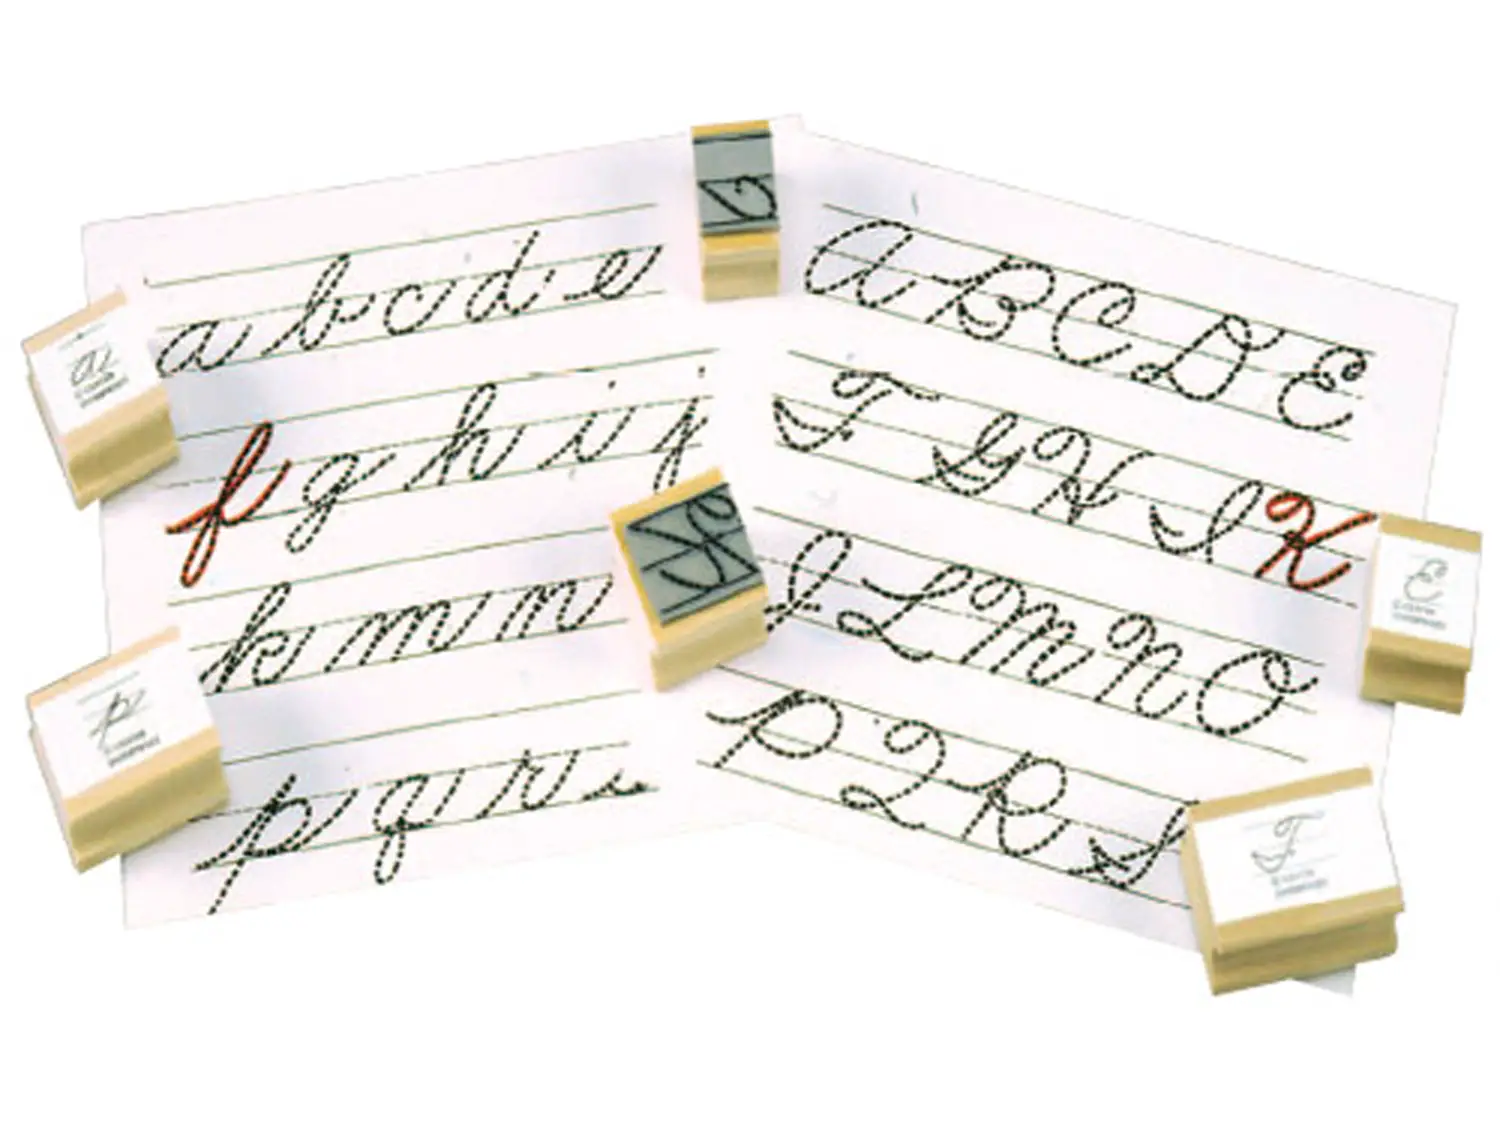 a b c d e
f g h i j
k m n
p q r s
A B C D E
F G H I K
J L M N O
P Q R S
a
p
E
F